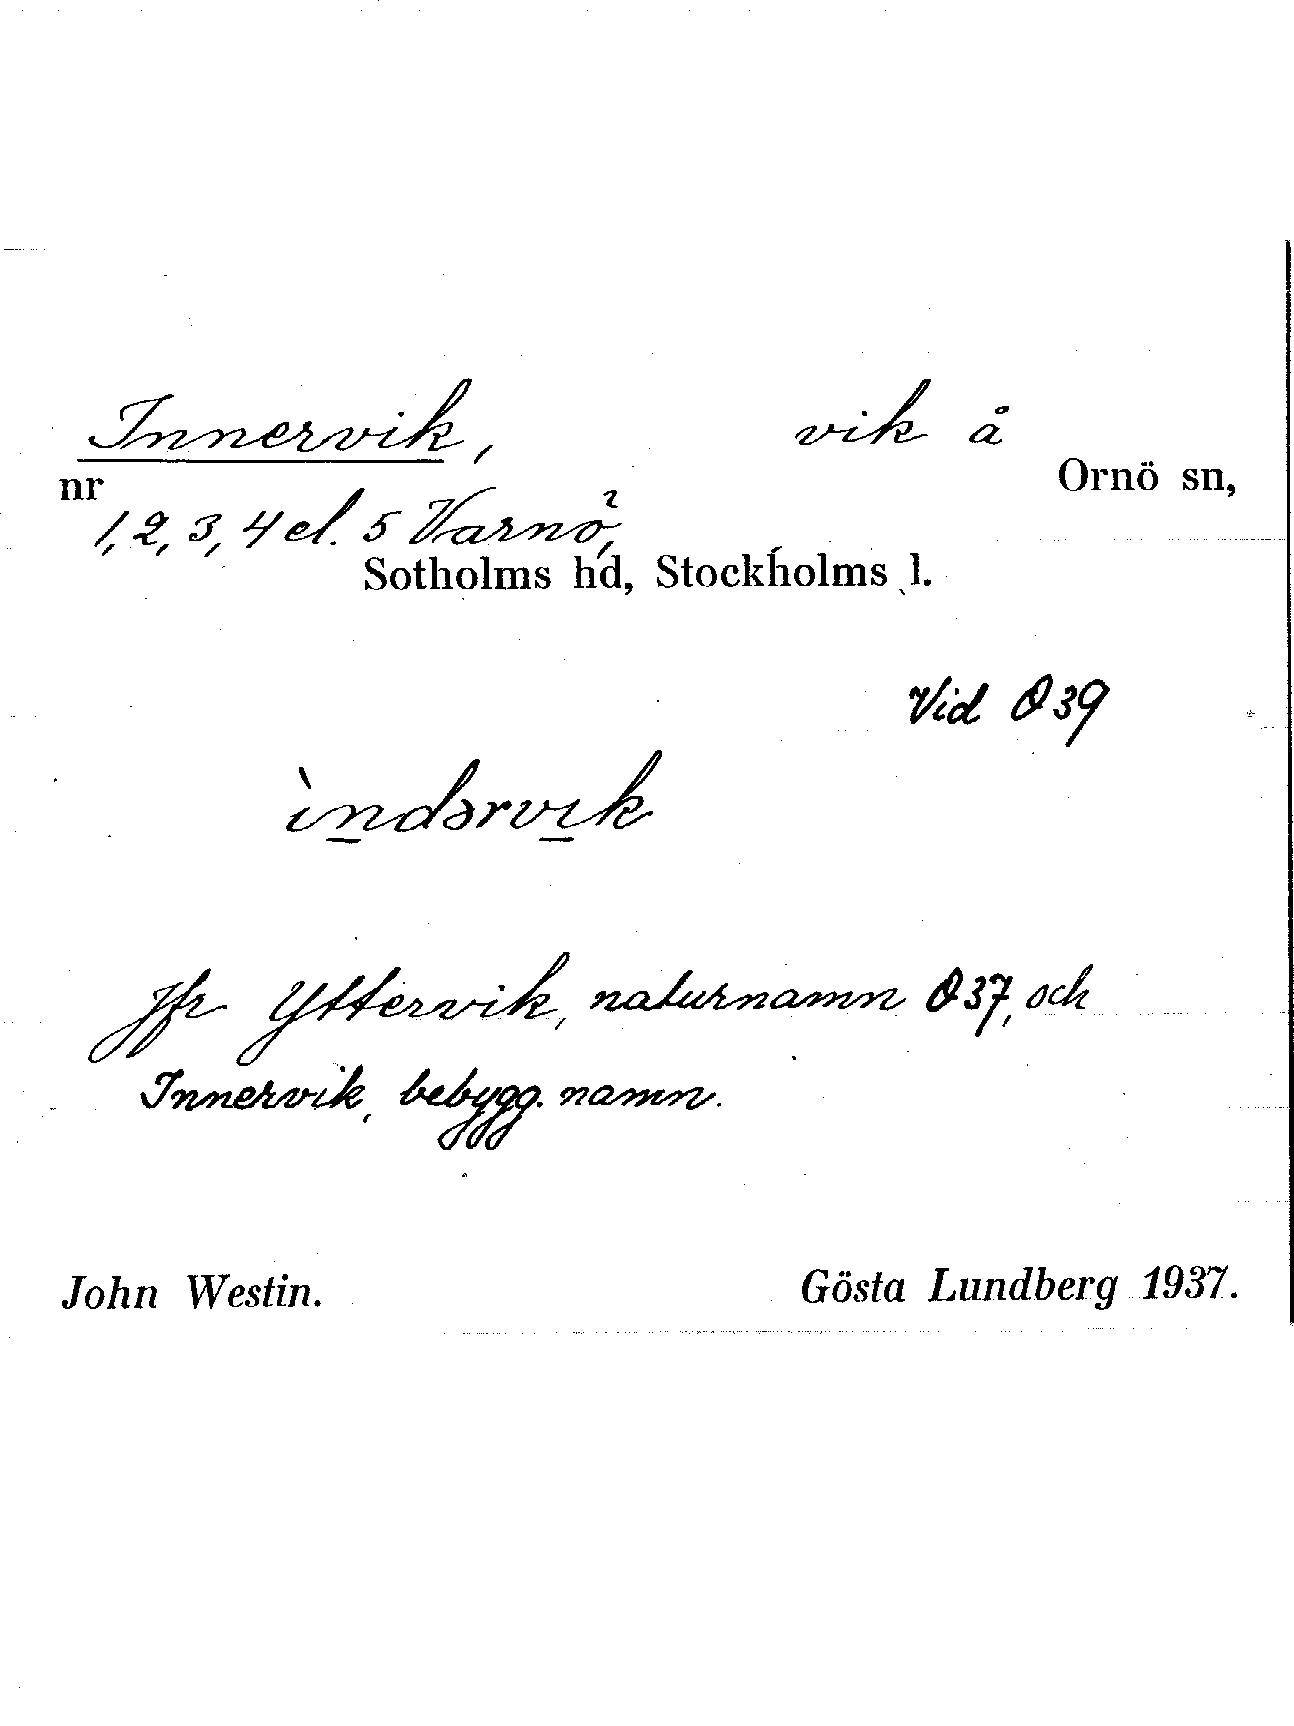 Innervik, vik å
nr Ornö sn,
1, 2, 3, 4 el. 5 Varnö,
Sotholms hd, Stockholms l.
Vid Ø 39
ìndərvik
Jfr Yttervik, naturnamn Ø 37, och
Innervik, bebygg. namn.
John Westin. Gösta Lundberg 1937.